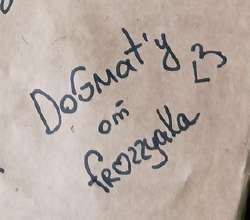 DOGMAT'y
L3
om
frozzyaka